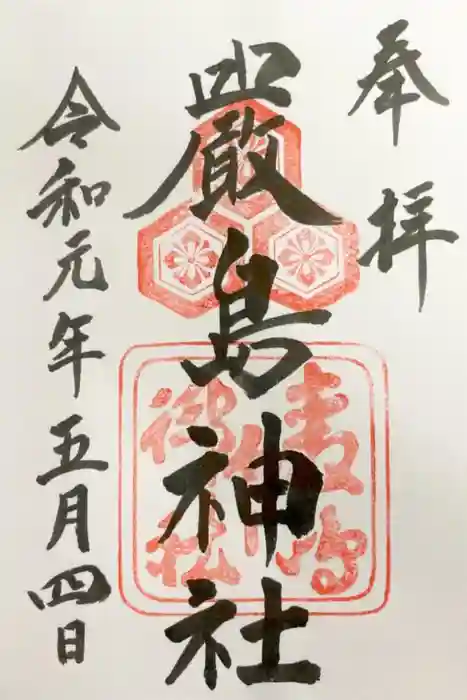 奉拝
嚴島神社
令和元年五月四日